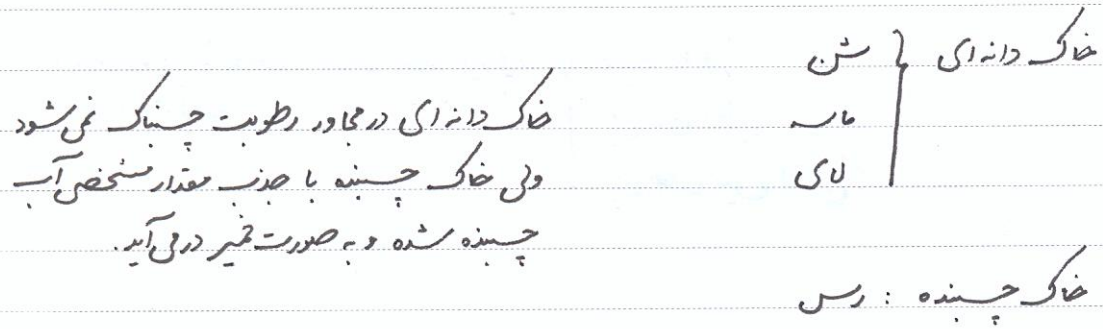 خاک دانه ای { شن
ماسه
لای
خاک دانه ای در مجاور رطوبت چسبناک نمی شود
ولی خاک چسبنده با جذب مقدار مشخصی آب
چسبنده شده و به صورت خمیر در می آید.
خاک چسبنده : رس